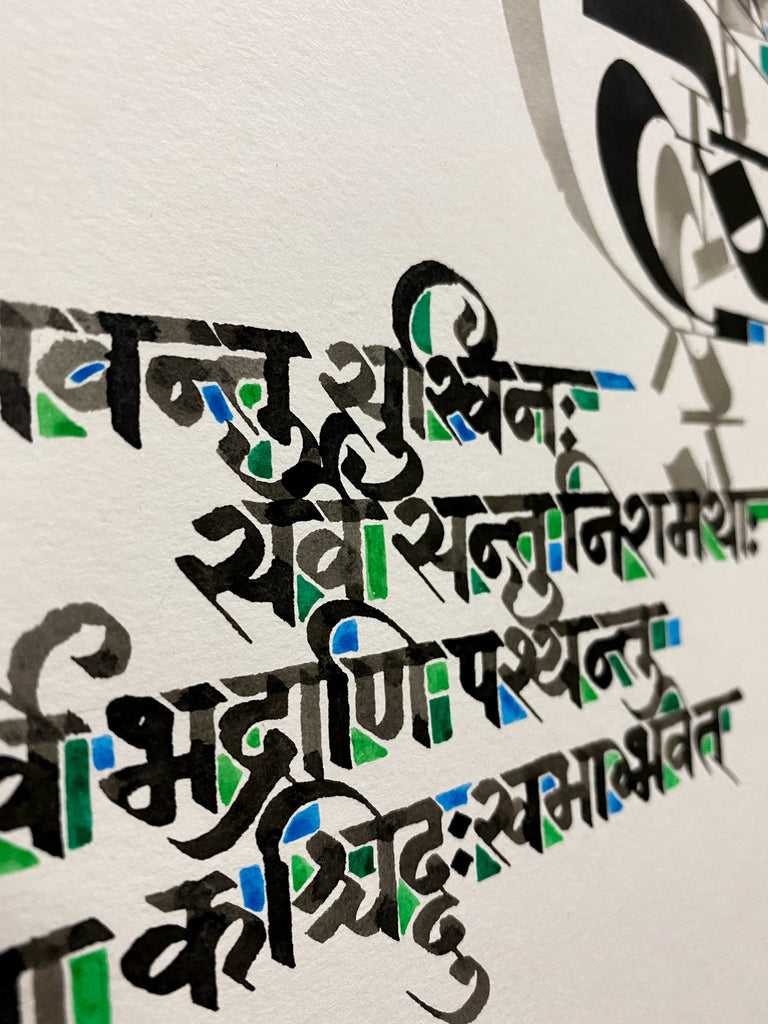 वन्तु सुखिनः
सर्वे सन्तु निरामयाः
र्वे भद्राणि पश्यन्तु
कश्चिद्दुःखभाग्भवेत्